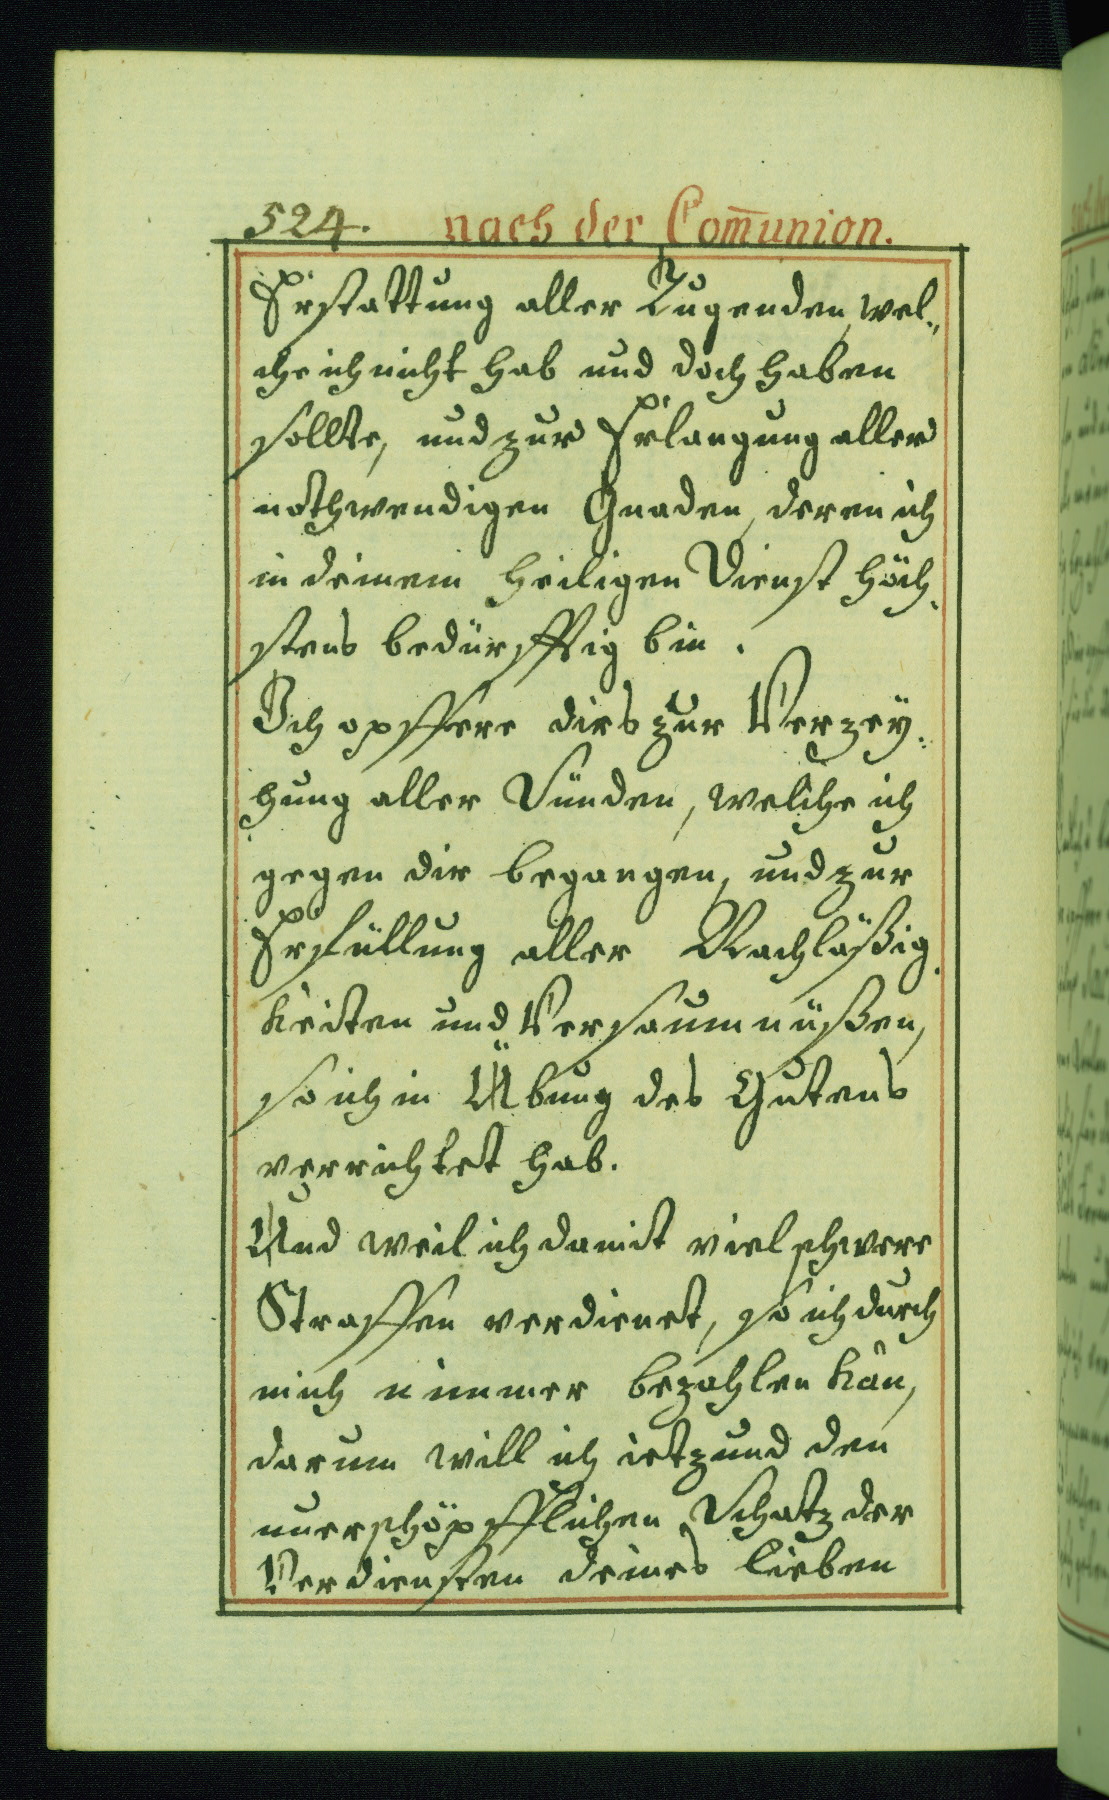 524. nach der Com̅union.
Erstattung aller Tugenden, wel-
che ich nicht hab und doch haben
sollte, und zur Erlangung aller
nothwendigen Gnaden, deren ich
in deinem heiligen Dienst höch-
stens bedürfftig bin.
Ich opffere dirs zur Verzey-
hung aller Sünden, welche ich
gegen dir begangen, und zur
Erfüllung aller Nachläßig-
keiten und Versaumnüßen,
so ich in Übung des Gutens
verrichtet hab.
Und weil ich damit viel schwere
Straffen verdienet, so ich durch
mich nimmer bezahlen kan̅,
darum will ich ietzund den
unerschöpfflichen Schatz der
Verdiensten deines lieben